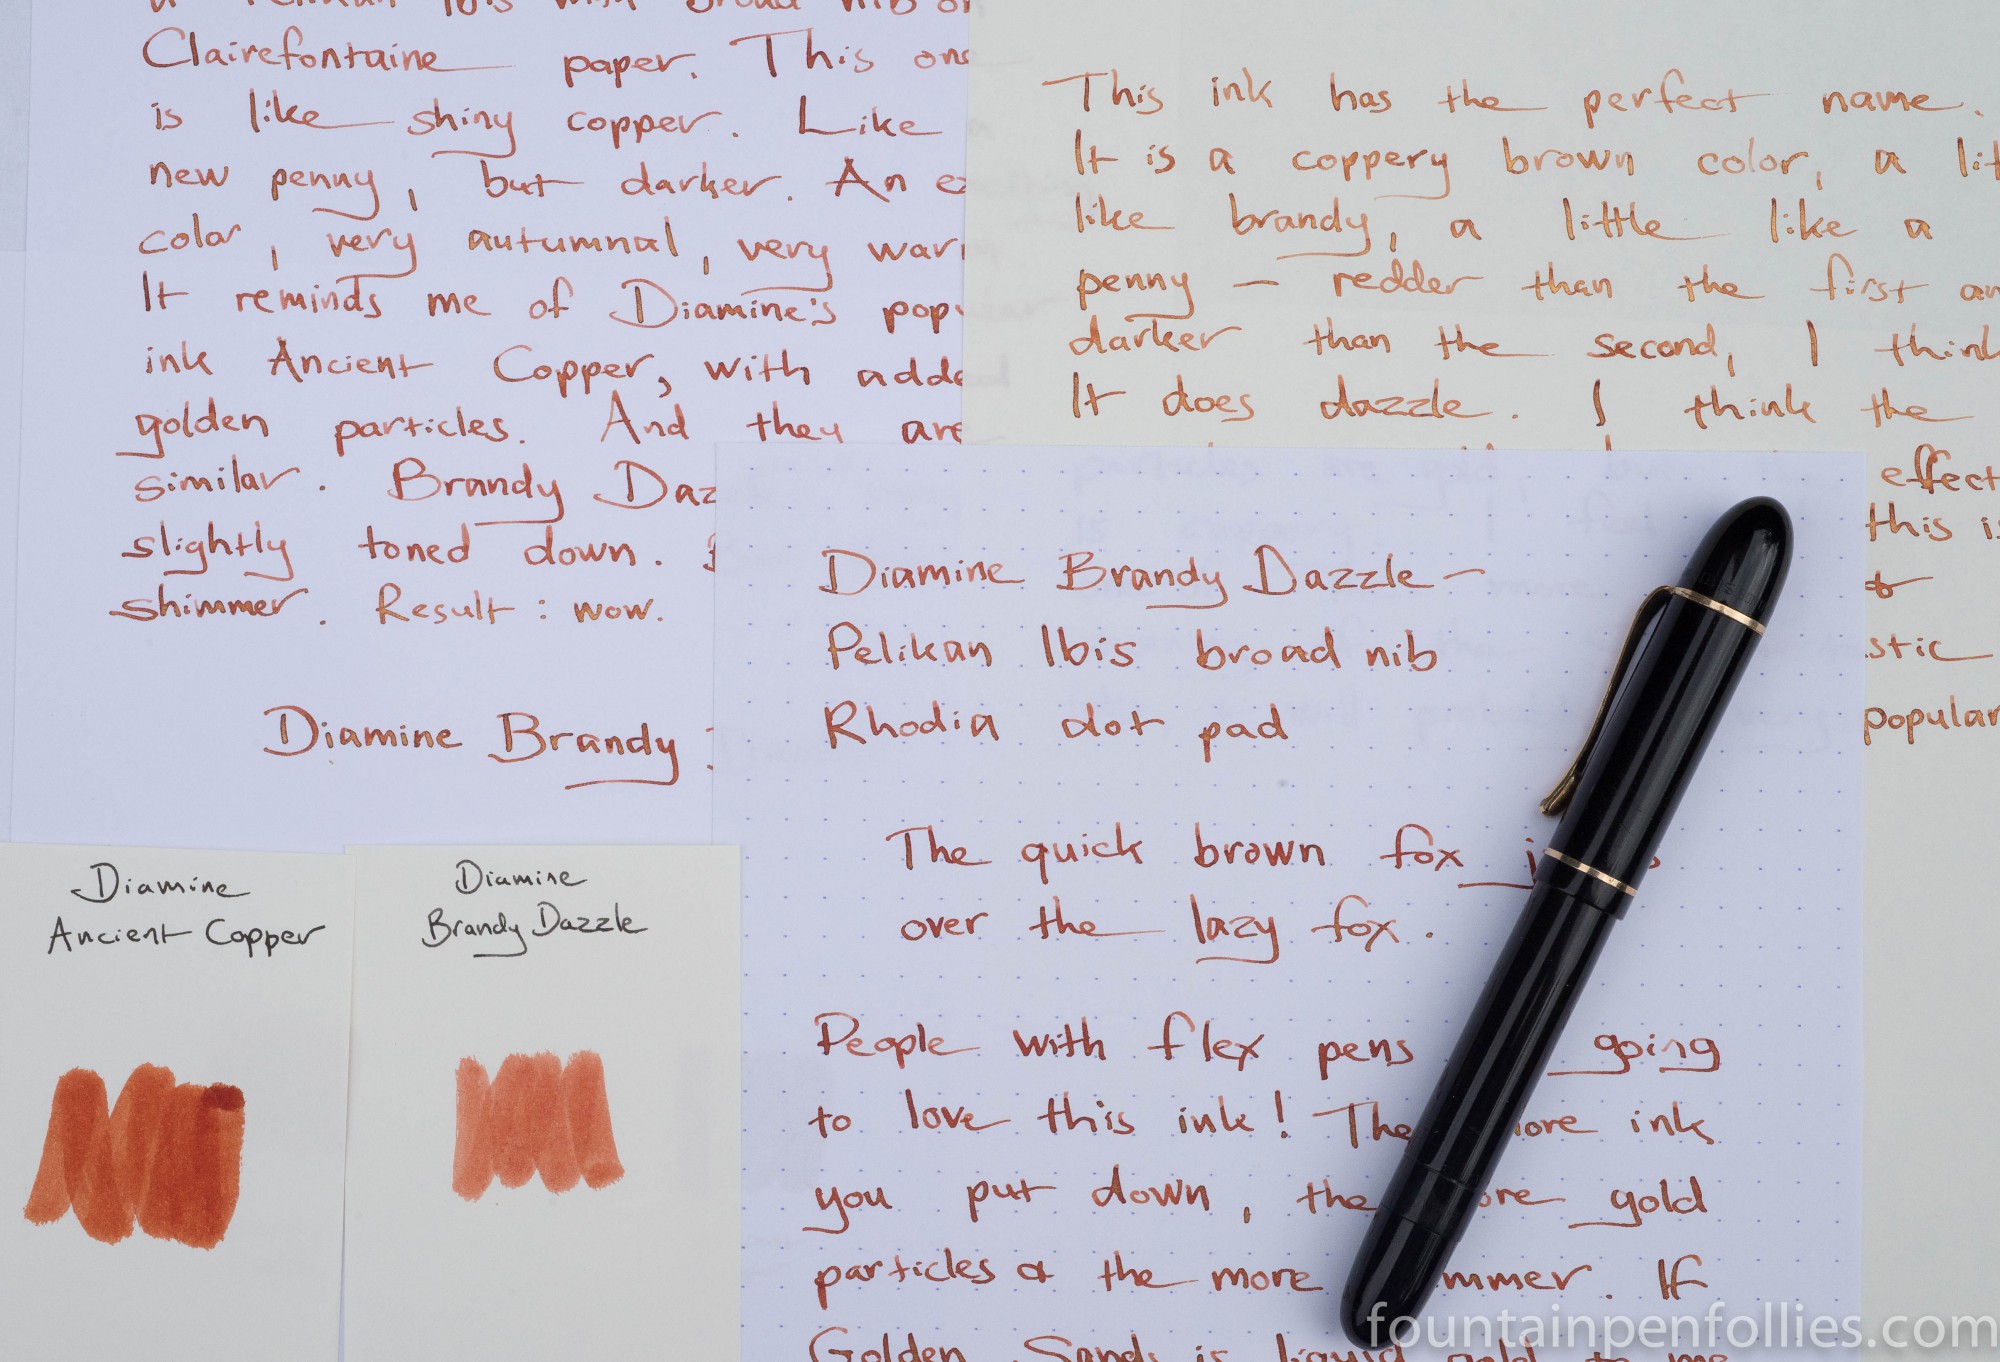 Clairefontaine paper. This one
is like shiny copper. Like
new penny, but darker. An
color, very autumnal, very
It reminds me of Diamine's
ink Ancient Copper, with
golden particles. And they are
similar. Brandy
slightly toned down.
shimmer. Result: wow.
Diamine Brandy
This ink has the perfect name.
It is a coppery brown color, a
like brandy, a little like a
penny — redder than the first
darker than the second, I think
It does dazzle. I think the
effect
this is
popular
Diamine Brandy Dazzle —
Pelikan Ibis broad nib
Rhodia dot pad
The quick brown fox
over the lazy fox.
People with flex pens going
to love this ink! The ink
you put down, the gold
particles & the more If
Golden Sands is liquid gold to me
Diamine
Ancient Copper
Diamine
Brandy Dazzle
fountainpenfollies.com